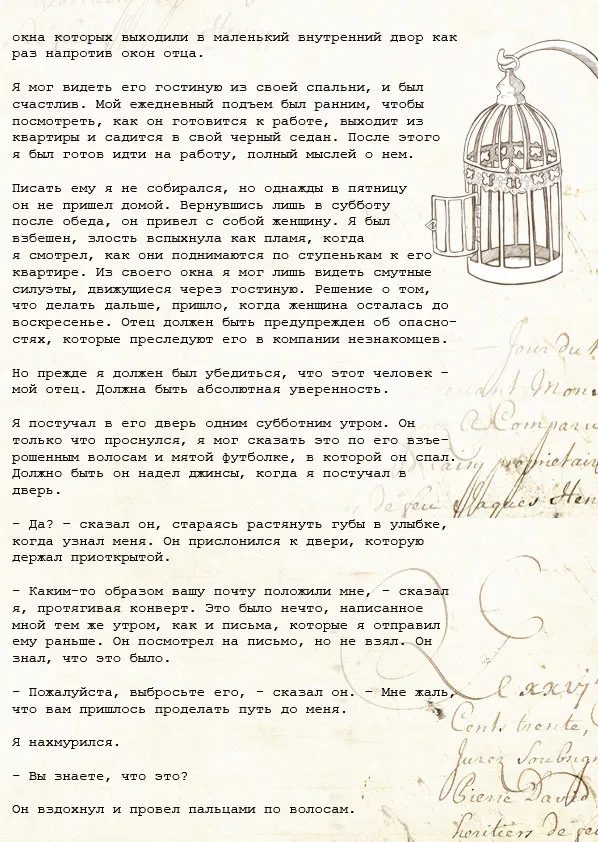 окна которых выходили в маленький внутренний двор как
раз напротив окон отца.
Я мог видеть его гостиную из своей спальни, и был
счастлив. Мой ежедневный подъем был ранним, чтобы
посмотреть, как он готовится к работе, выходит из
квартиры и садится в свой черный седан. После этого
я был готов идти на работу, полный мыслей о нем.
Писать ему я не собирался, но однажды в пятницу
он не пришел домой. Вернувшись лишь в субботу
после обеда, он привел с собой женщину. Я был
взбешен, злость вспыхнула как пламя, когда
я смотрел, как они поднимаются по ступенькам к его
квартире. Из своего окна я мог лишь видеть смутные
силуэты, движущиеся через гостиную. Решение о том,
что делать дальше, пришло, когда женщина осталась до
воскресенье. Отец должен быть предупрежден об опасно-
стях, которые преследуют его в компании незнакомцев.
Но прежде я должен был убедиться, что этот человек –
мой отец. Должна быть абсолютная уверенность.
Я постучал в его дверь одним субботним утром. Он
только что проснулся, я мог сказать это по его взъе-
рошенным волосам и мятой футболке, в которой он спал.
Должно быть он надел джинсы, когда я постучал в
дверь.
– Да? – сказал он, стараясь растянуть губы в улыбке,
когда узнал меня. Он прислонился к двери, которую
держал приоткрытой.
– Каким-то образом вашу почту положили мне, – сказал
я, протягивая конверт. Это было нечто, написанное
мной тем же утром, как и письма, которые я отправил
ему раньше. Он посмотрел на письмо, но не взял. Он
знал, что это было.
– Пожалуйста, выбросьте его, – сказал он. – Мне жаль,
что вам пришлось проделать путь до меня.
Я нахмурился.
– Вы знаете, что это?
Он вздохнул и провел пальцами по волосам.
Jour du
Mon
Compar
proprietair
de feu Jacques Hen
xxvj
Cents trente,
Juree Soubrig
Pierre David
heritiers de feu